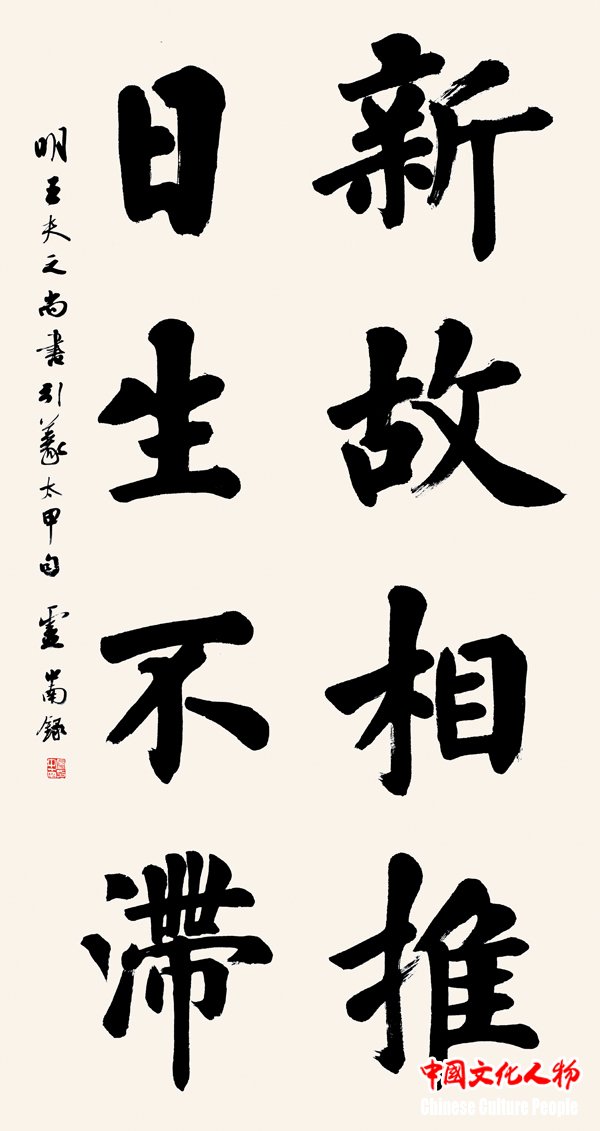 新故相推
日生不滞
明王夫之尚书引义太甲句
中国文化人物
Chinese Culture People